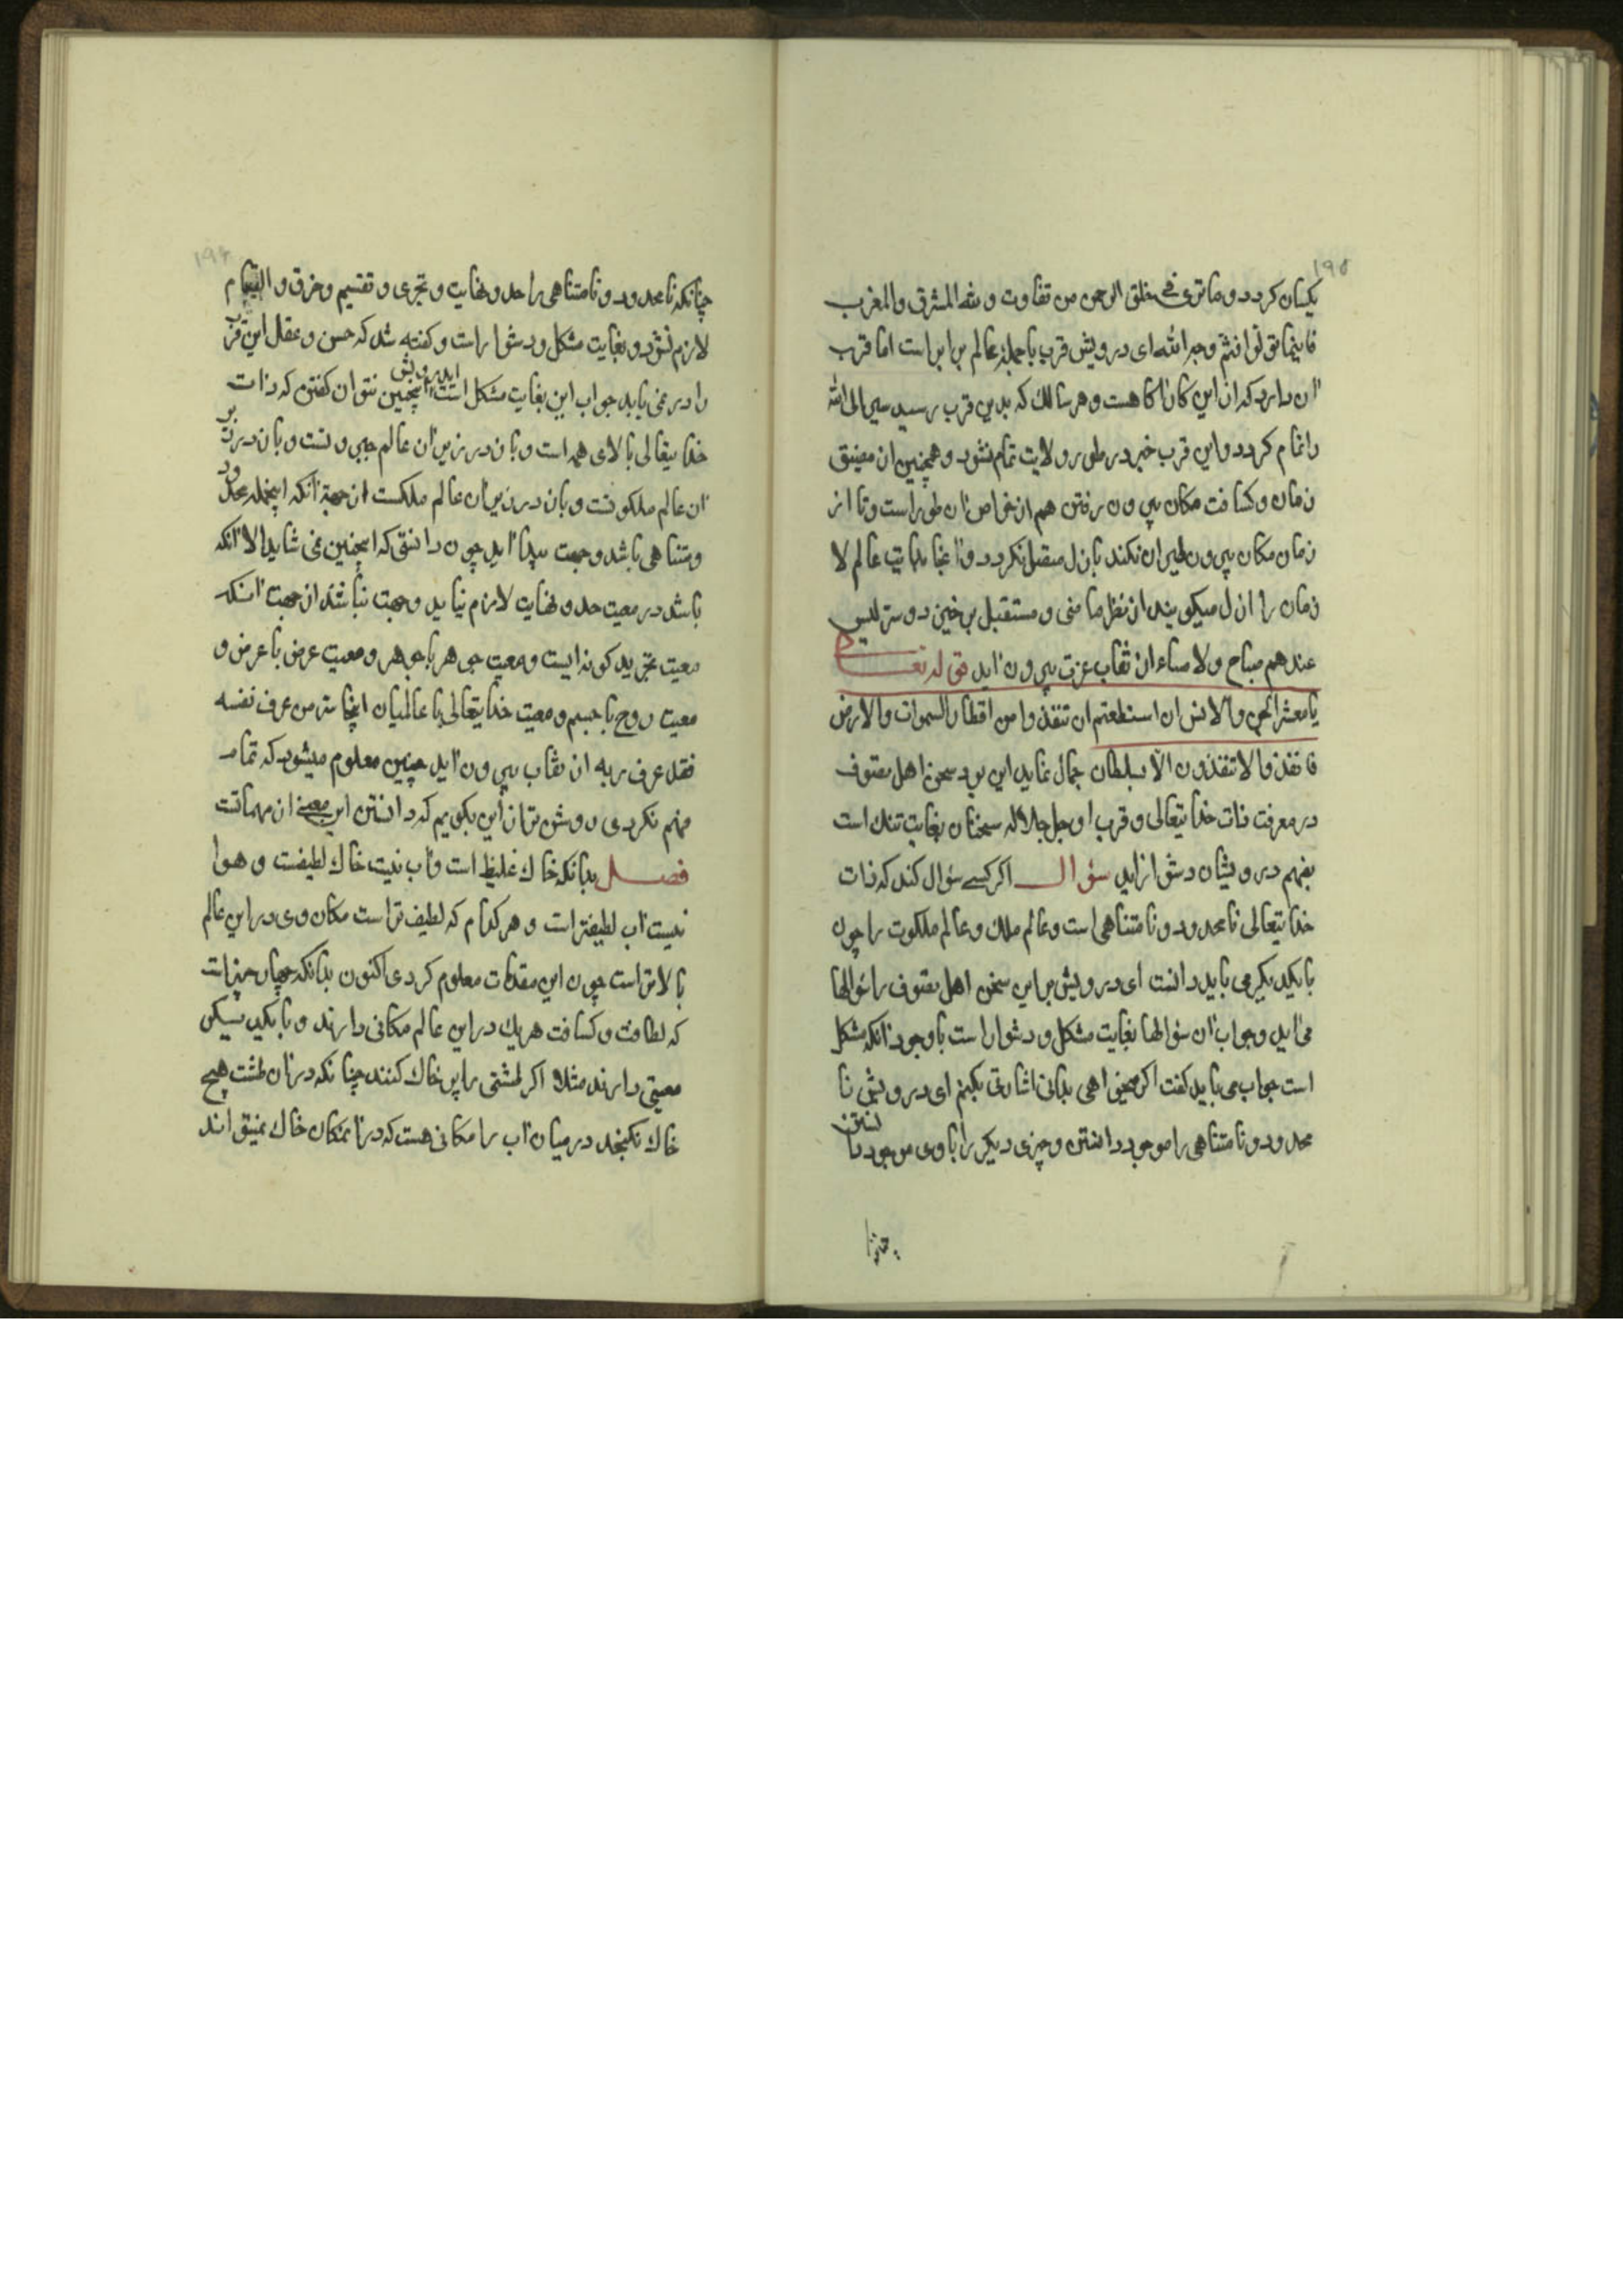 ۱۹۵
یکسان کردد و ما تری فی خلق الرحمن من تفاوت و لله المشرق والمغرب
فاینما تولوا فثم وجه الله ای درویش قرب با جمله عالم برابر است اما قرب
آن دارد که از این کار آکاهست و هر سالک که بدین قرب رسید سیر الی الله
را تمام کردد و این قرب خبر در طور ولایت تمام نشود و همچنین از مضیق
زمان و کثافت مکان بیرون رفتن هم از خواص آن طور است و تا از
زمان مکان بیرون طیران نکند بازل متصل نکردد و آنجا بدایت عالم لا
زمان را ازل میکویند از نظر ماضی و مستقبل برخیزد و سر لیس
عندهم صباح و لا مساء از نقاب عزت بیرون آید قوله تعالی
یا معشر الجن والانس ان استطعتم ان تنفذوا من اقطار السموات والارض
فانفذوا لا تنفذون الا بسلطان جمال نماید این بود سخن اهل تصوف
در معرفت ذات خدایتعالی و قرب او جل جلاله سخنان بغایت تنک است
بفهم درویشان دشوار آید سؤال اکر کسی سؤال کند که ذات
خدایتعالی نامحدود و نامتناهی است و عالم ملک و عالم ملکوت را چون
بایکدیکر می باید دانست ای درویش بر این سخن اهل تصوف را سؤالها
می آید و جواب آن سؤالها بغایت مشکل و دشوار است با وجود آنکه مشکل
است جواب می باید کفت اکر میخواهی بدانی اشارتی بکنم ای درویش نا
محدود و نامتناهی را موجود دانستن و چیزی دیکر را با وی موجود دانستن
چنا
۱۹۴
چنانکه نامحدود و نامتناهی را حد و نهایت و تجزی و تقسیم و خرق و التیام
لازم نشود و بغایت مشکل و دشوار است و کفته شد که حس و عقل این قرب
را در نمی یابد جواب این بغایت مشکل است ایدرویش اینچنین نتوان کفتن که ذات
خدایتعالی بالای همه است و باز در زیر آن عالم جبروتست و باز در زیر
آن عالم ملکوتست و باز در زیر آن عالم ملکست از جهة آنکه اینجمله محدود
و متناهی باشد و جهت پیدا آید چون دانستی که اینچنین نمی شاید الا آنکه
باشد در معیت حد و نهایت لازم نیاید و جهت نباشد از جهت آنکه
معیت بچند کونه ایست و معیت جوهر با جوهر و معیت عرض با عرض و
معیت روح با جسم و معیت خدایتعالی با عالمیان اینجا سر من عرف نفسه
فقد عرف ربه از نقاب بیرون آید چنین معلوم میشود که تمام
فهم نکردی روشن تر از این بکویم که دانستن این معنی از مهماتست
فصل بدانکه خاک غلیظ است و آب نسبت خاک لطیفست و هوا
نسبت آب لطیفتر است و هر کدام که لطیف تر است مکان وی در این عالم
بالاتر است چون این مقدمات معلوم کردی اکنون بدانکه چهار چیز است
که لطافت و کثافت هر یک در این عالم مکانی دارند و با یکدیکر
معیتی دارند مثلا اکر طشتی را پر خاک کنند چنانکه در آن طشت هیچ
خاک نکنجد در میان آب را مکانی هست که در آنمکان خاک نمیتواند